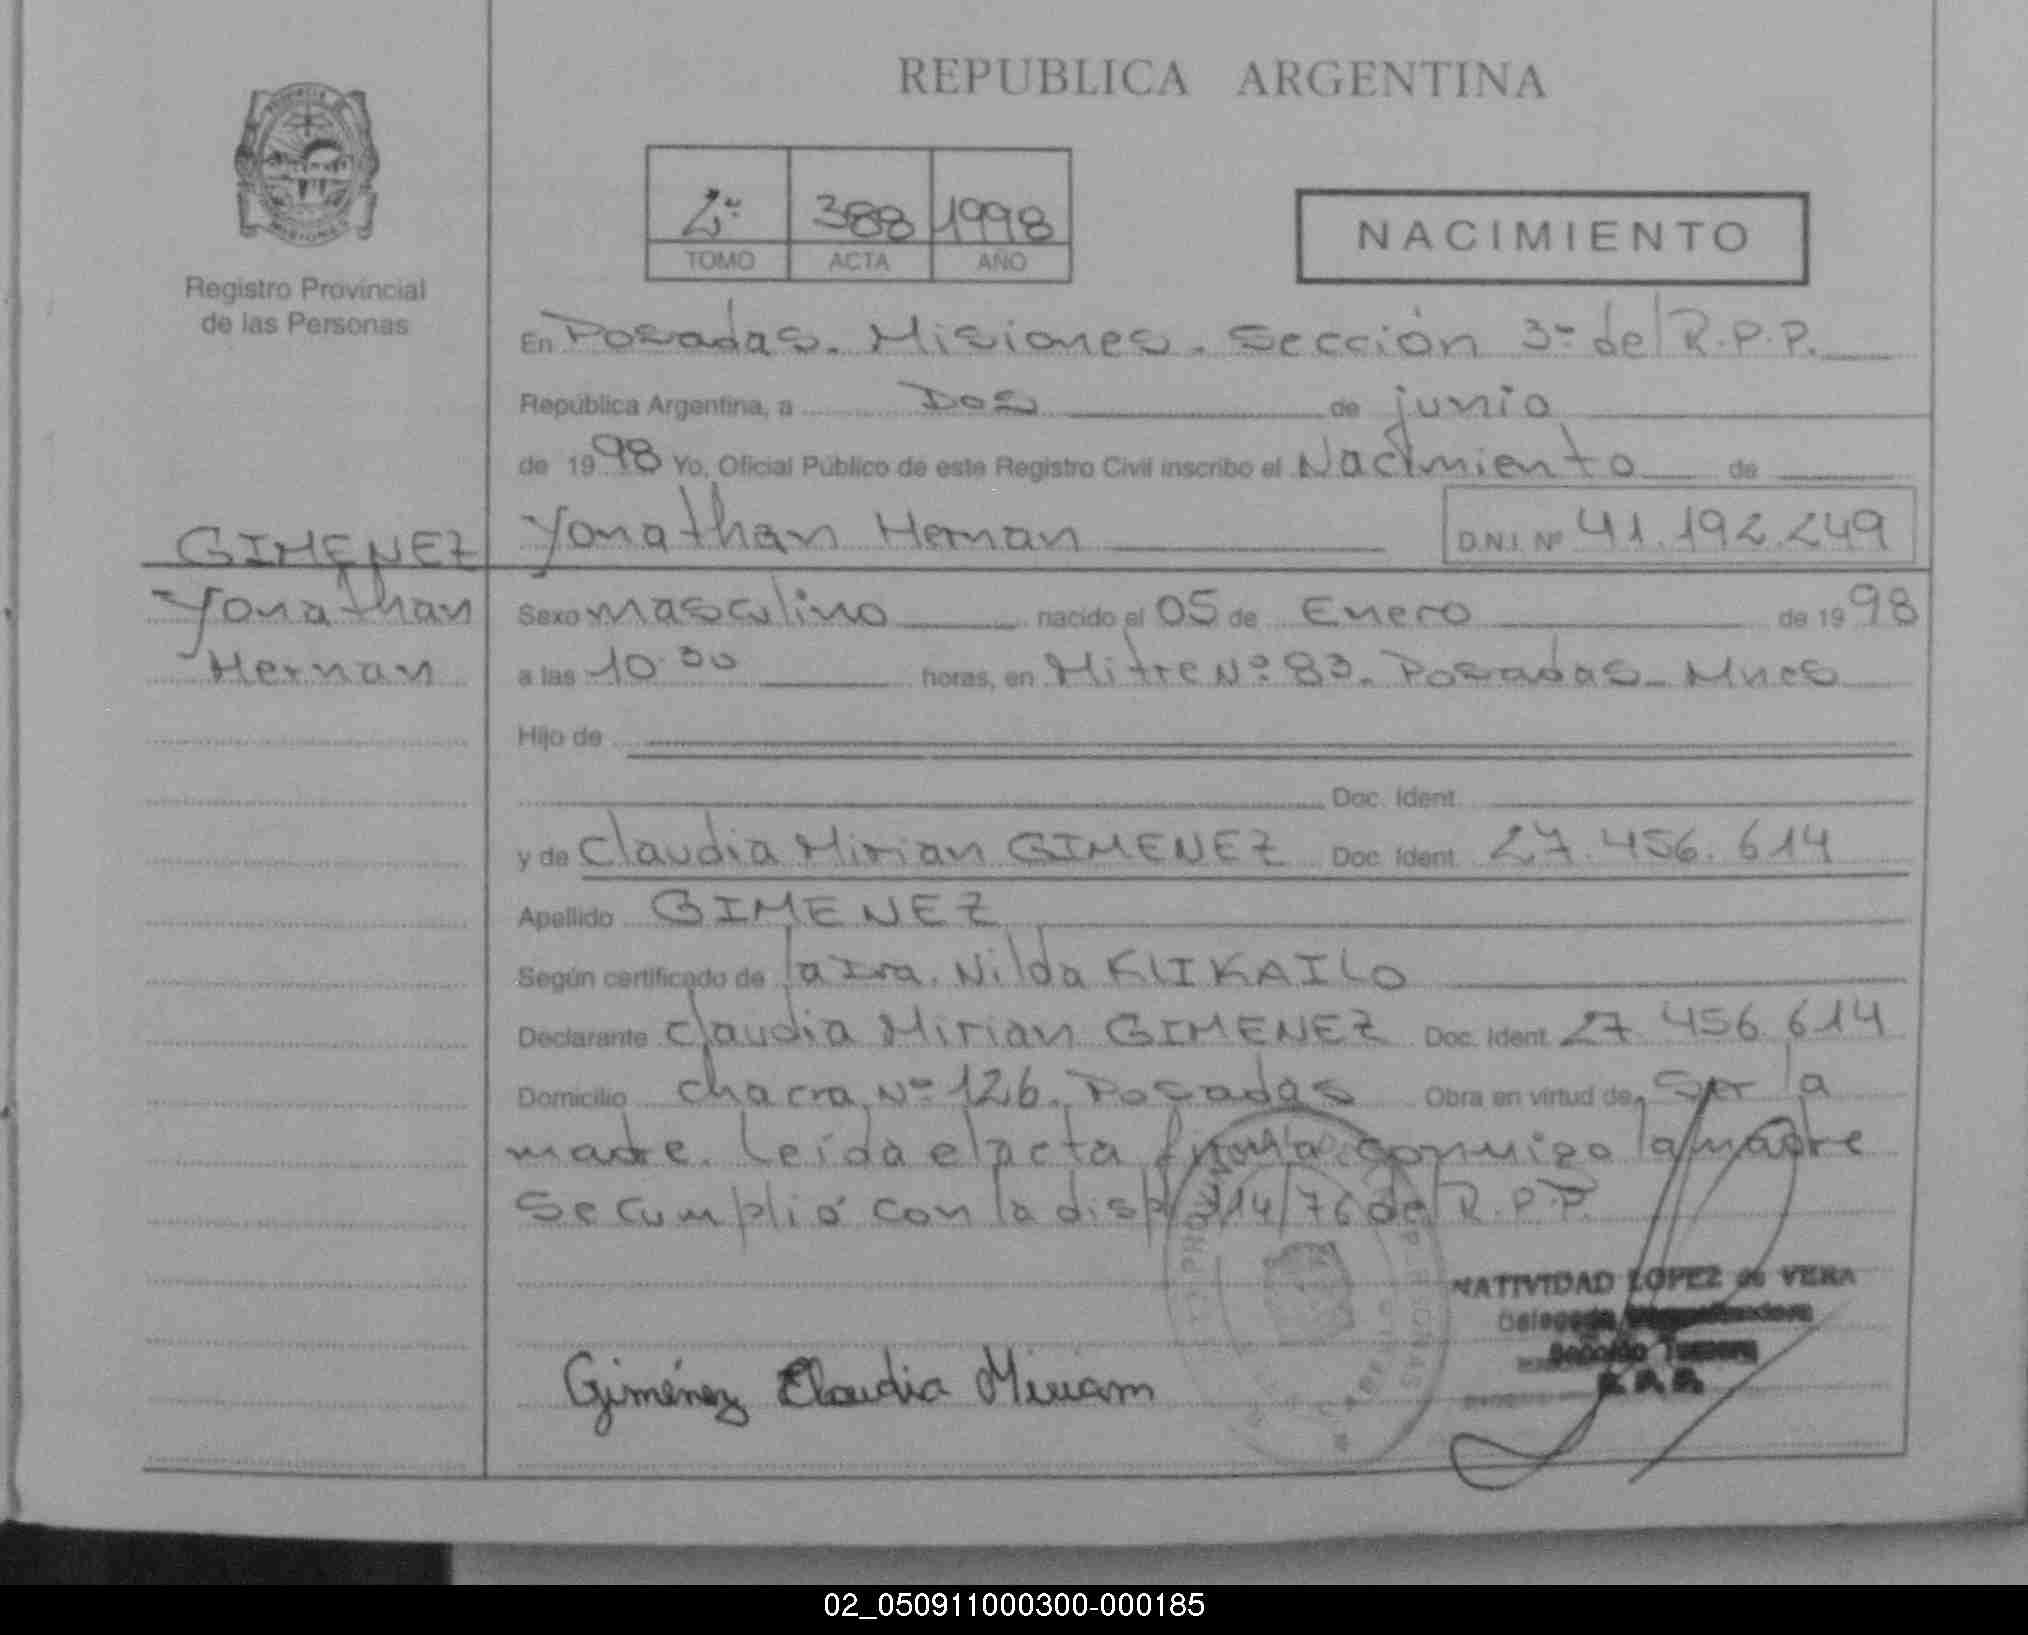 REPUBLICA ARGENTINA
PROVINCIA DE
MISIONES
Registro Provincial
de las Personas
2º 388 1998
TOMO ACTA AÑO
NACIMIENTO
En Posadas. Misiones. Sección 3ª del R.P.P.
República Argentina, a Dos de junio
de 1998 Yo, Oficial Público de este Registro Civil inscribo el Nacimiento de
Yonathan Hernan D.N.I. Nº 41.192.249
GIMENEZ
Yonathan
Hernan
Sexo masculino nacido el 05 de Enero de 1998
a las 10.30 horas, en Mitre Nº 83. Posadas_ Mnes
Hijo de
Doc. Ident.
y de Claudia Mirian GIMENEZ Doc. Ident. 27.456.614
Apellido GIMENEZ
Según certificado de la Dra. Nilda KLIKAILO
Declarante Claudia Mirian GIMENEZ Doc. Ident. 27.456.614
Domicilio chacra Nº 126. Posadas Obra en virtud de Ser la
madre. Leída el acta firma conmigo la madre
Se cumplió con la disp 314/76 del R.P.P.
NATIVIDAD LOPEZ de VERA
Delegada
Sección Tercera
R.P.P.
Giménez Claudia Miriam
02_050911000300-000185